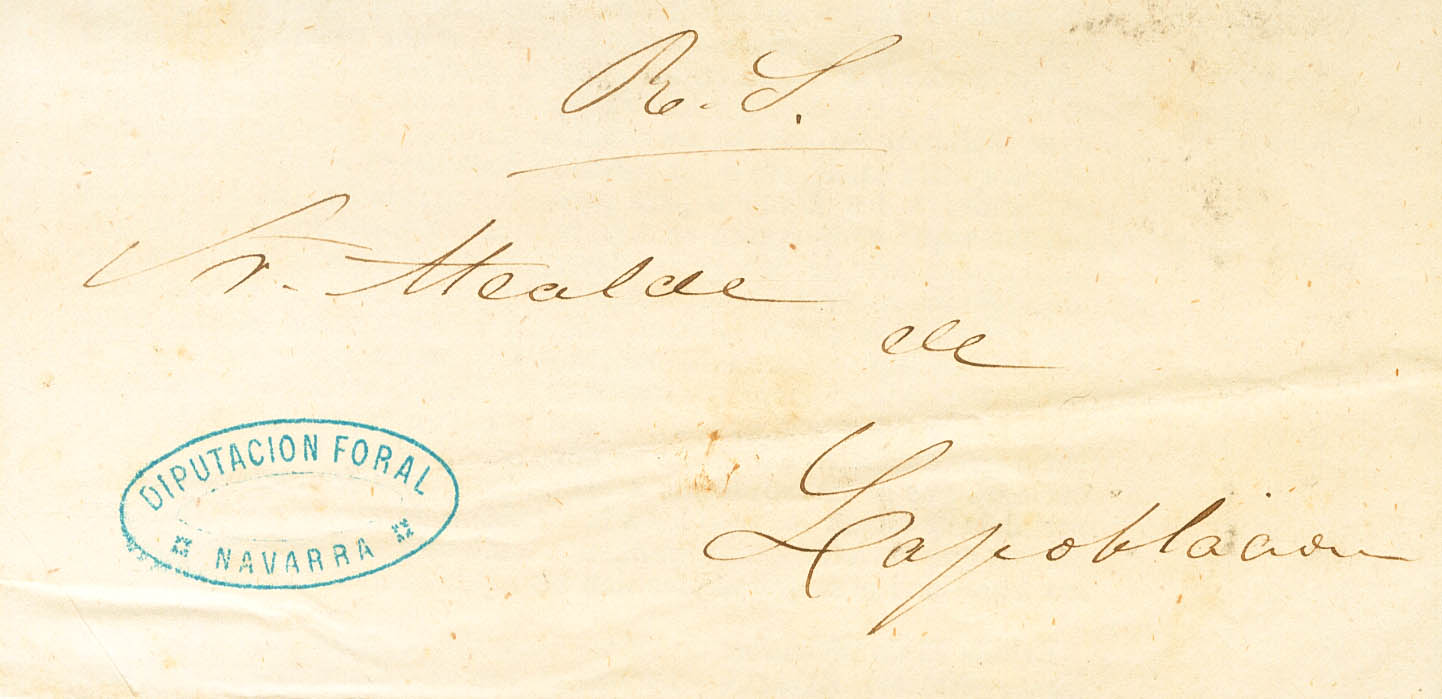 R. S.
Sr. Alcalde
de
Lapoblacion
DIPUTACION FORAL
NAVARRA